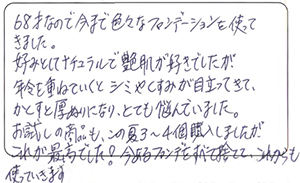 68才なので今まで色々なファンデーションを使って
きました。
好みとしてナチュラルで艶肌が好きでしたが
年令を重ねていくとシミやくすみが目立ってきて、
かくすと厚ぬりになり、とても悩んでいました。
お試しの商品も、この夏3〜4個購入しましたが
これが最高でした！今あるファンデをすべて捨てて、これからも
使っていきます